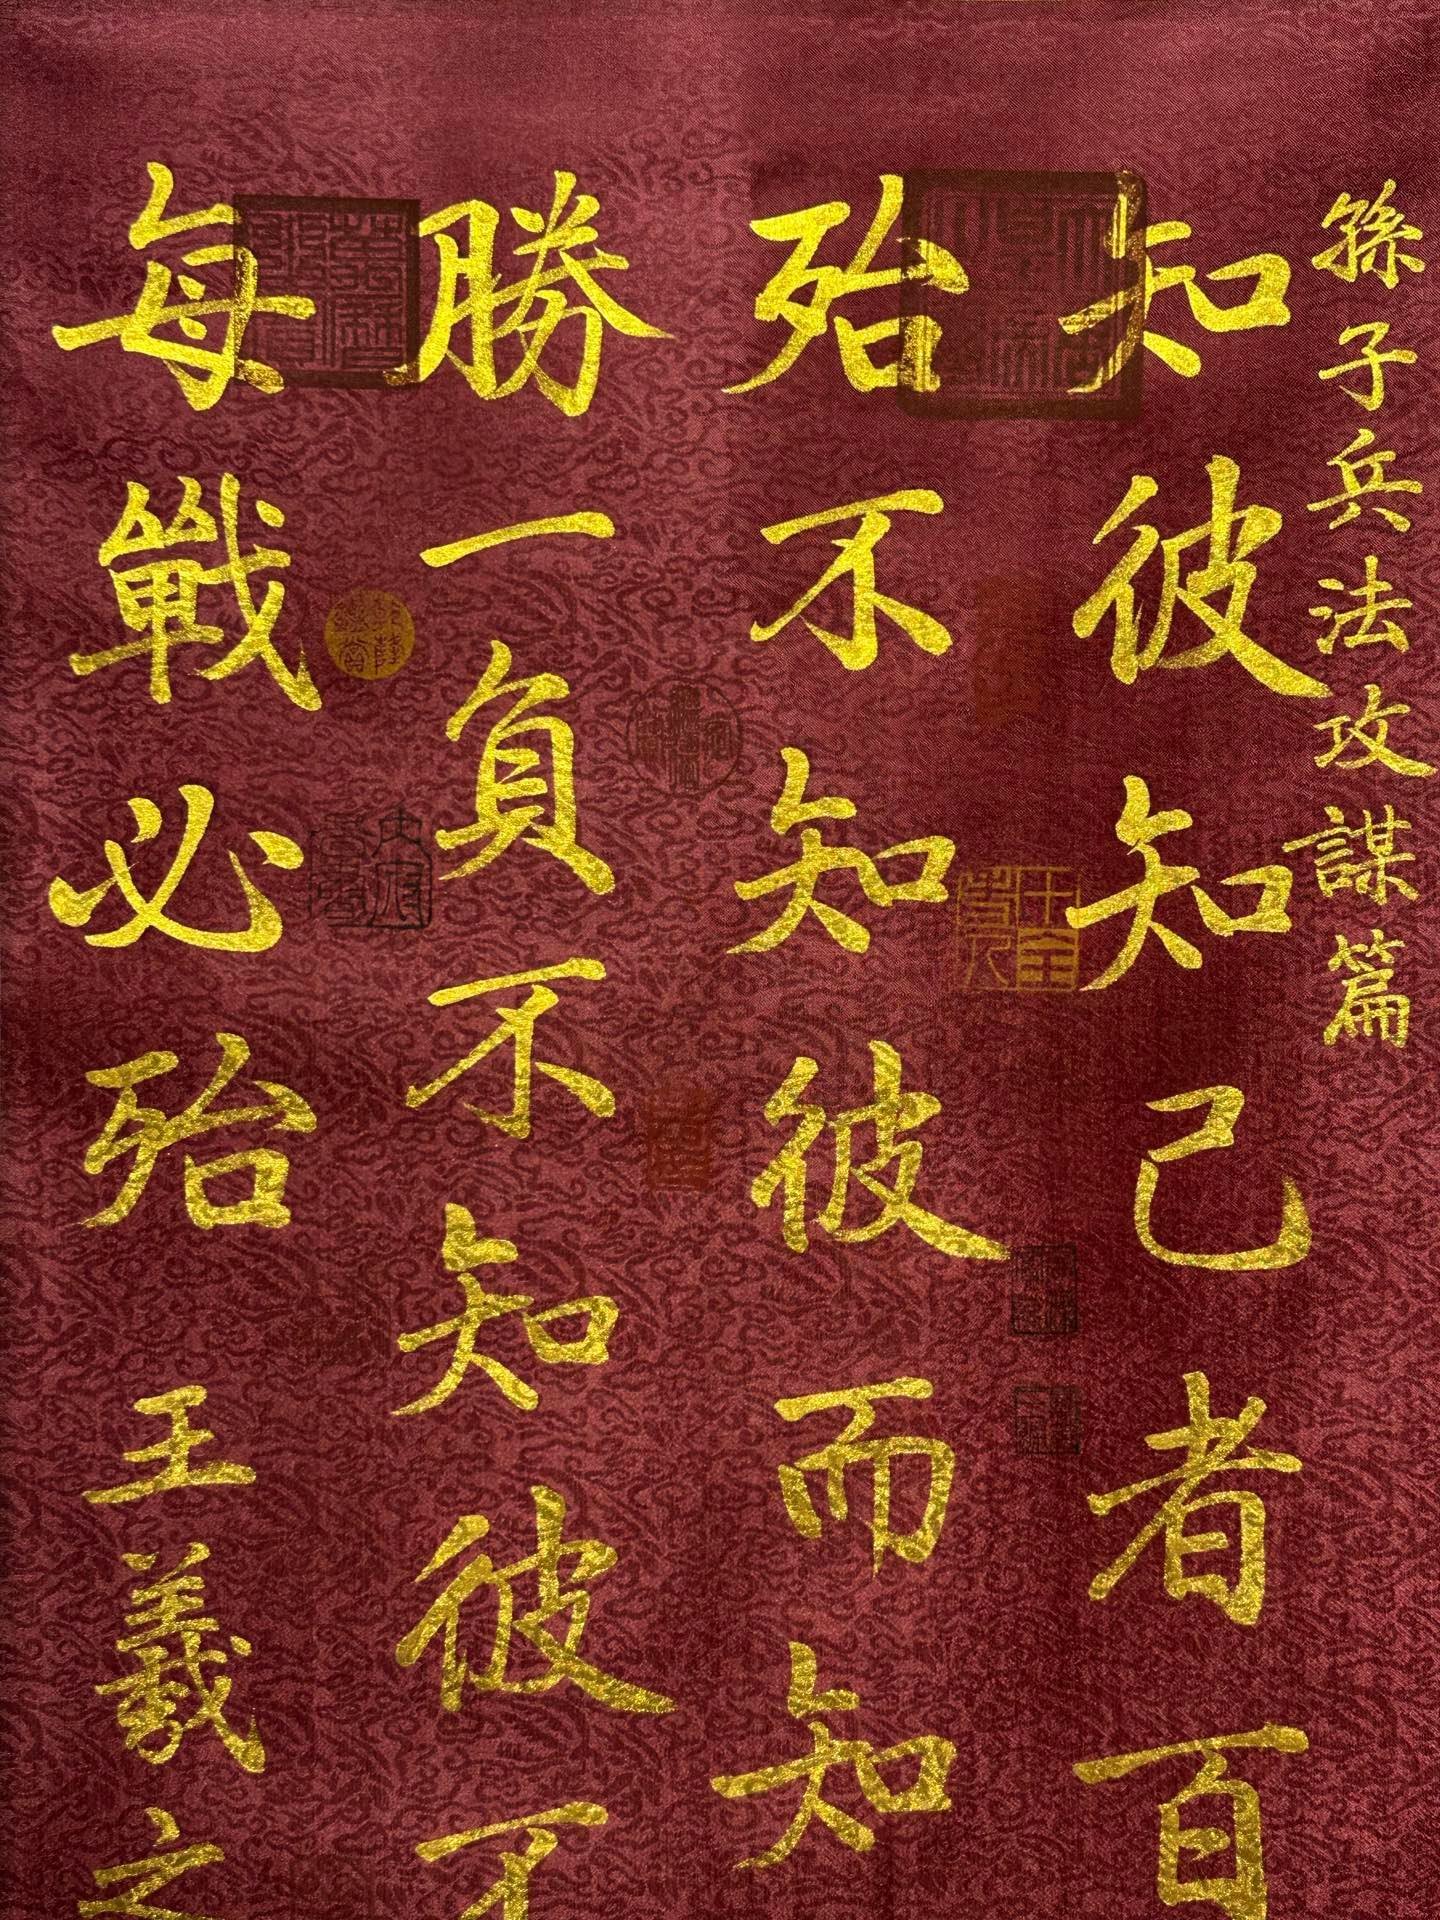 孫子兵法攻謀篇
知彼知己者百
殆不知彼而知
勝一負不知彼不
每戰必殆
王羲之